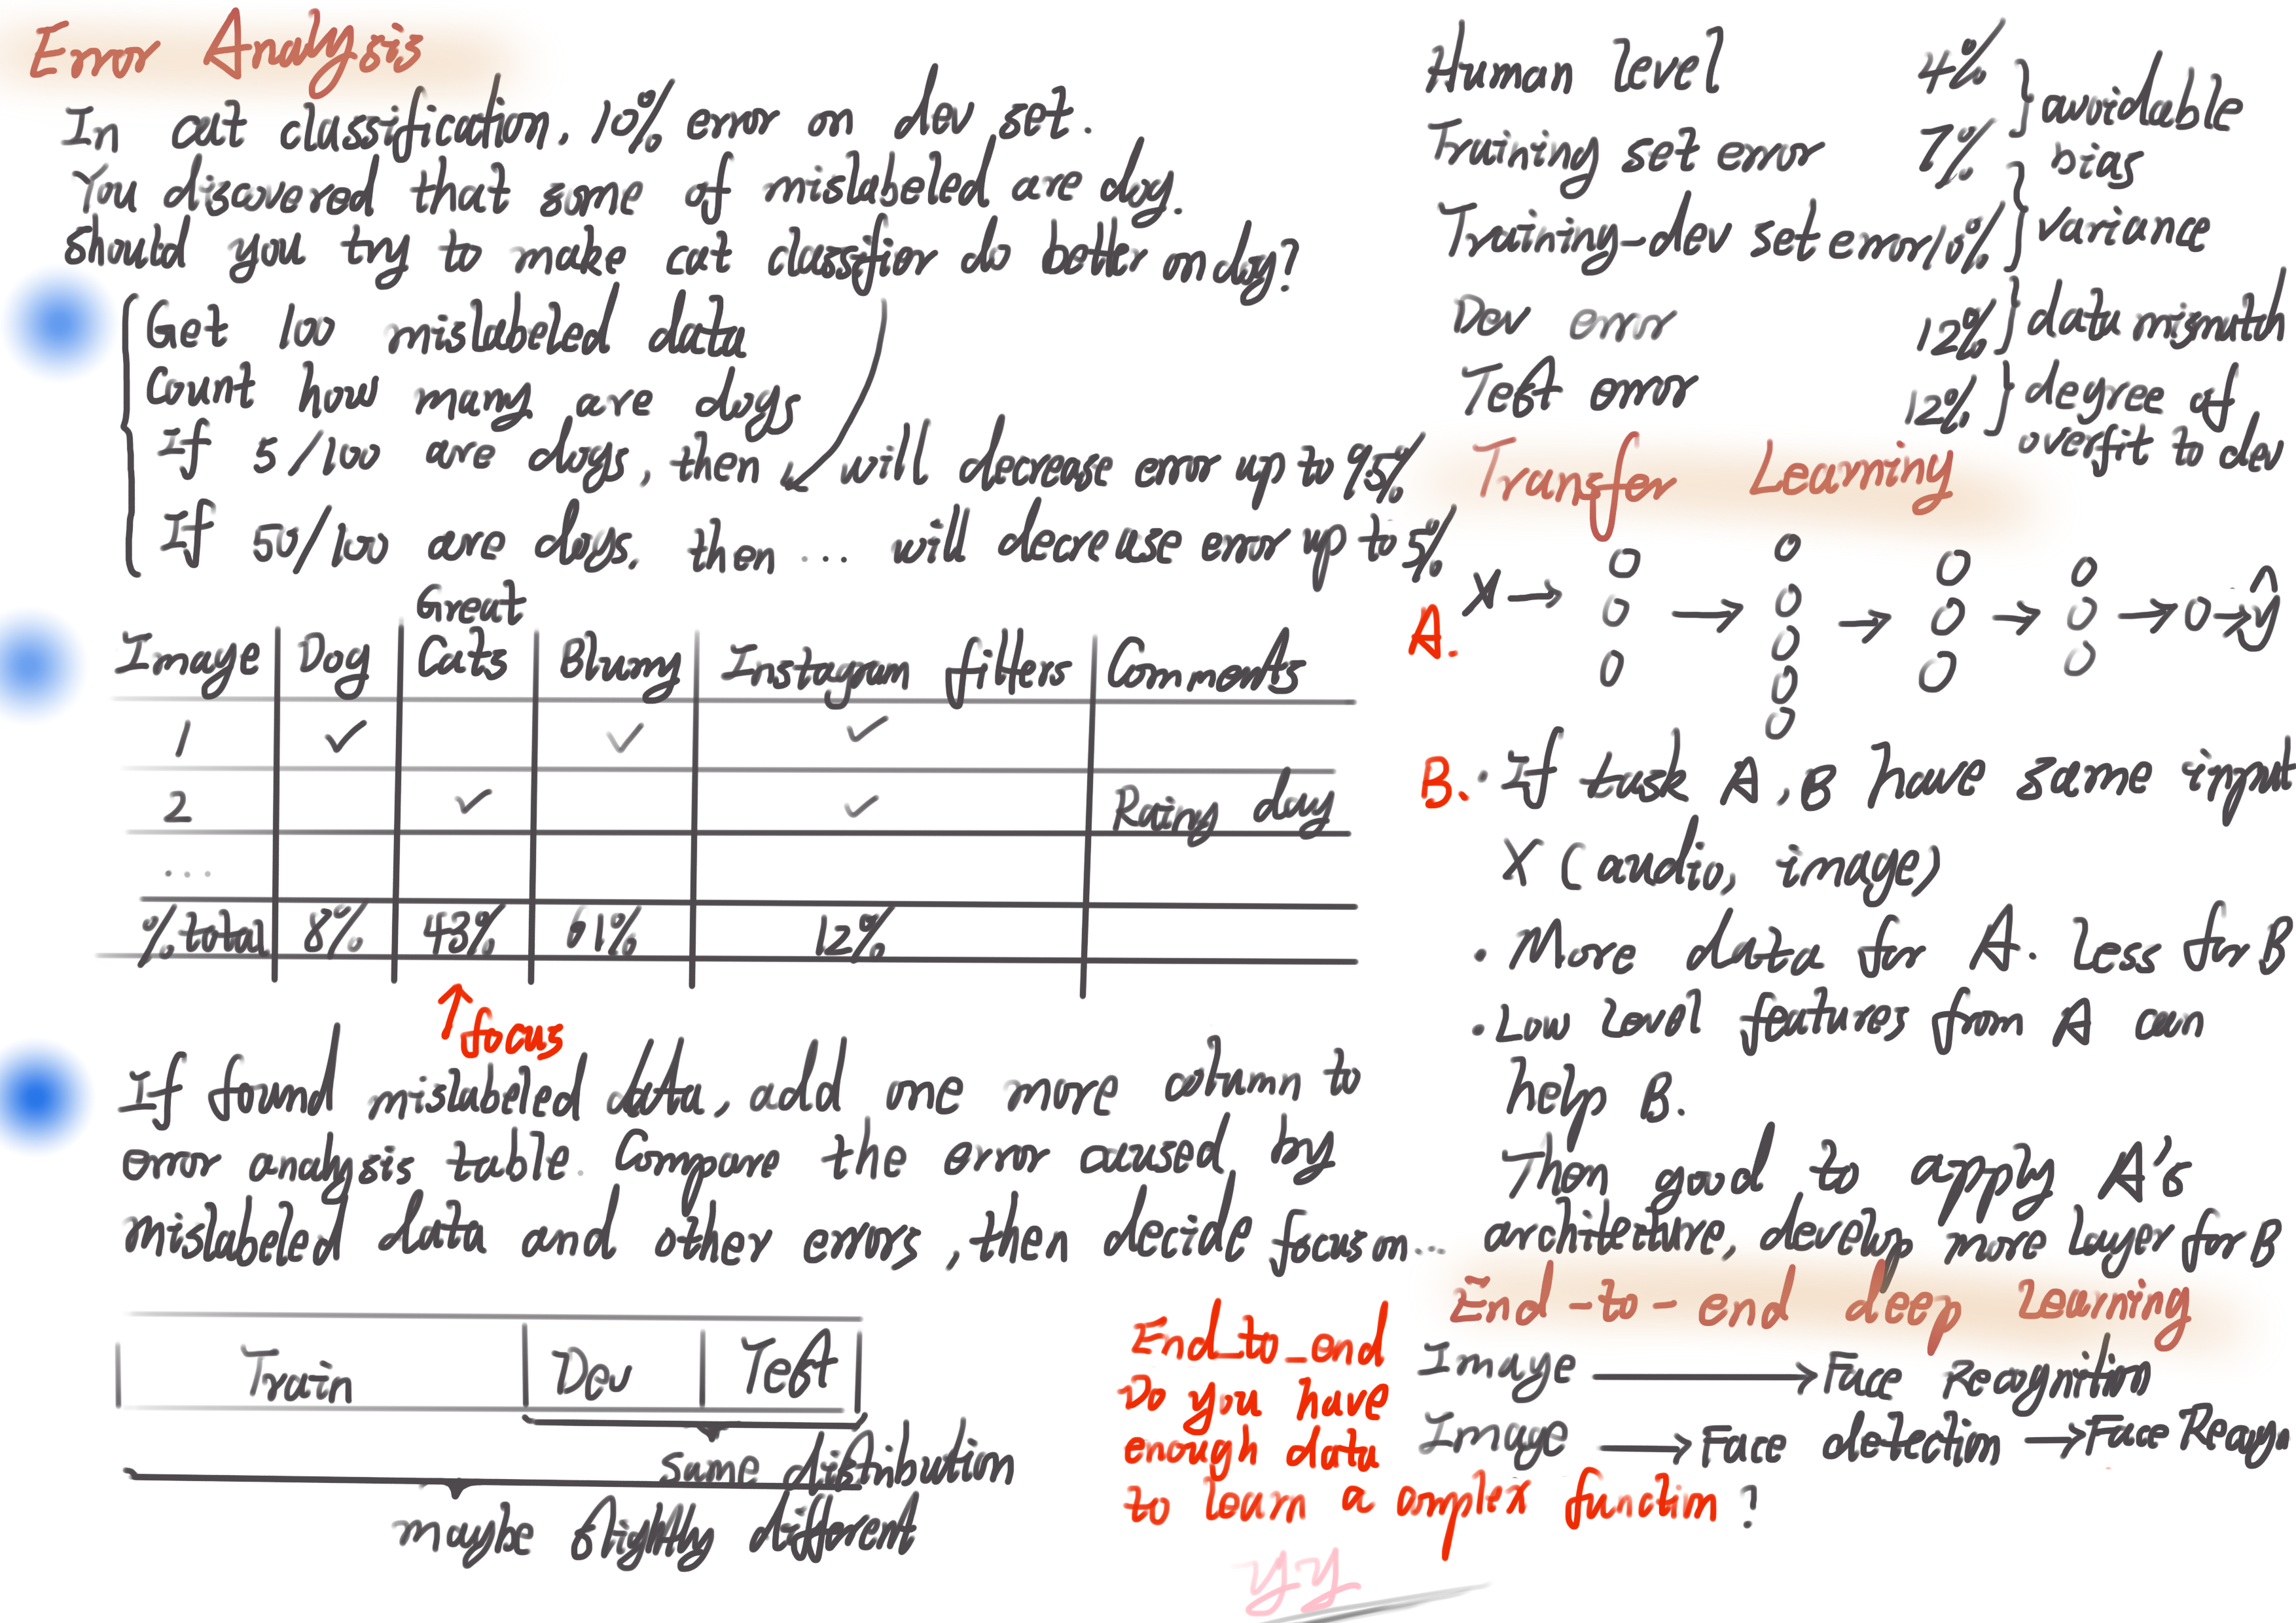 Error Analysis
In cat classification, 10% error on dev set.
You discovered that some of mislabeled are dog.
Should you try to make cat classifier do better on dog?
Get 100 mislabeled data
Count how many are dogs
If 5/100 are dogs, then will decrease error up to 9.5%
If 50/100 are dogs, then ... will decrease error up to 5%
Image Dog Great Cats Blurry Instagram filters Comments
1 ✓ ✓ ✓
2 ✓ ✓ Rainy day
...
% total 8% 43% 61% 12%
↑ focus
If found mislabeled data, add one more column to
error analysis table. Compare the error caused by
mislabeled data and other errors, then decide focus on...
Train Dev Test
same distribution
maybe slightly different
Human level 4%
Training set error 7%
Training-dev set error 10%
Dev error 12%
Test error 12%
} avoidable
bias
} variance
} data mismatch
} degree of
overfit to dev
Transfer Learning
A. X → → → → → ŷ
B. · If task A, B have same input
X (audio, image)
· More data for A. less for B
· Low level features from A can
help B.
Then good to apply A's
architecture, develop more layer for B
End-to-end deep learning
Image → Face Recognition
Image → Face detection → Face Recogn
End_to_end
Do you have
enough data
to learn a complex function?
yy